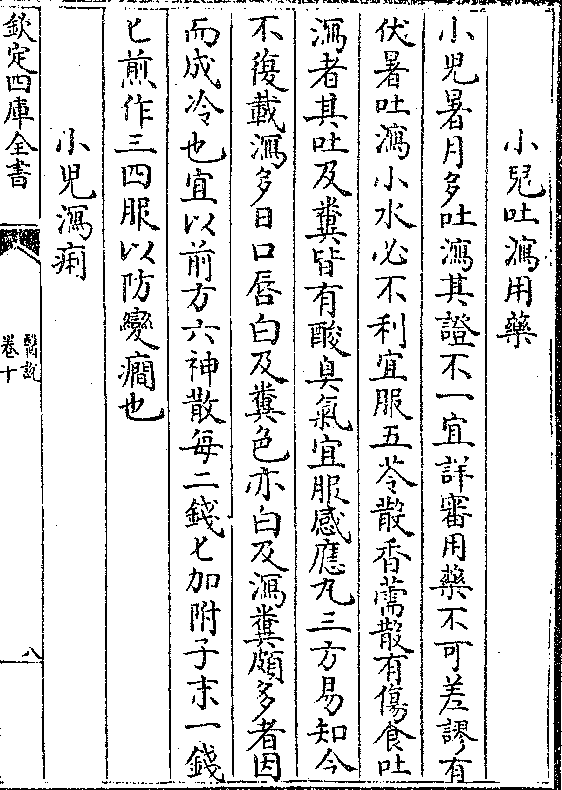 小兒吐瀉用藥
小兒暑月多吐瀉其證不一宜詳審用藥不可差謬有
伏暑吐瀉小水必不利宜服五苓散香薷散有傷食吐
瀉者其吐及糞皆有酸臭氣宜服感應丸三方易知今
不復載瀉多日口唇白及糞色亦白及瀉糞頗多者因
而成冷也宜以前方六神散每二錢匕加附子末一錢
匕煎作三四服以防變癎也
小兒瀉痢
欽定四庫全書
醫說
卷十
八